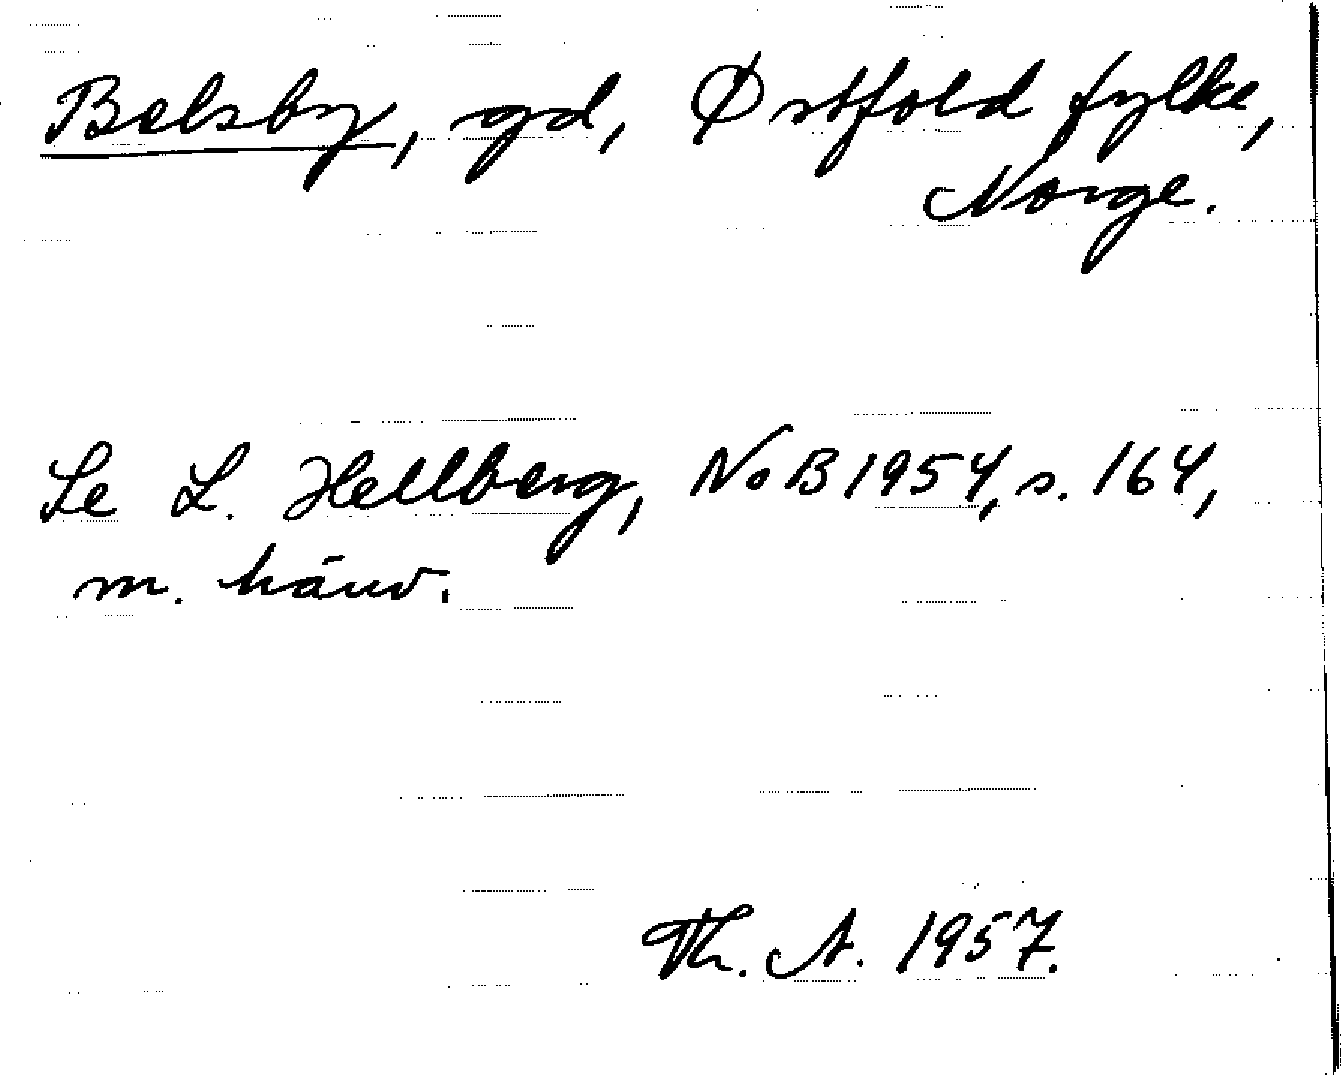 Belsby, gd, Østfold fylke,
Norge.
Se L. Hellberg, NoB 1954, s. 164,
m. hänv.
Th. A. 1957.